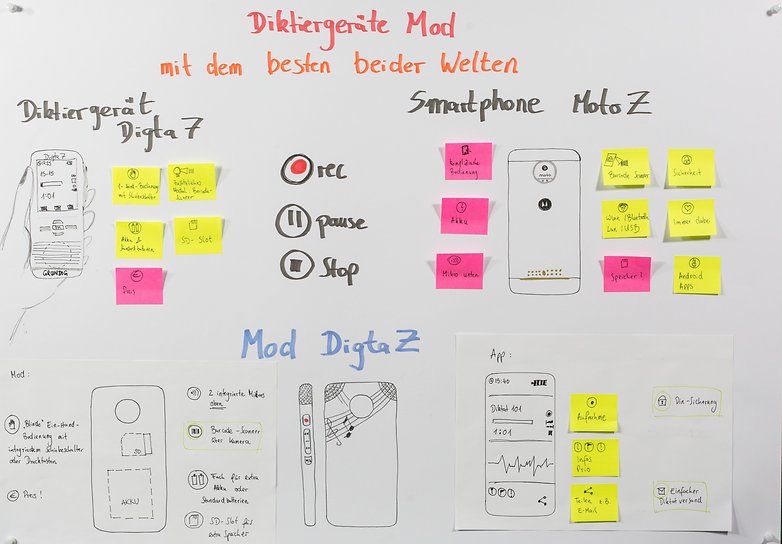 Diktiergeräte Mod
mit dem besten beider Welten
Diktiergerät
Digta 7
Smartphone Moto Z
Digta 7
15:15
1:01
GRUNDIG
1-Hand-Bedienung
mit Schiebeschalter
Akku &
SD-Slot
Preis
rec
pause
Stop
Bedienung
Akku
Mikro unten
moto
Barcode Scanner
Sicherheit
Wlan / Bluetooth
Lan / USB
Immer dabei
Speicher?
Android
Apps
Mod Digta Z
Mod:
"Blinde" Ein-Hand-
Bedienung mit
integriertem Schiebeschalter
oder Drucktasten
Preis!
SD
AKKU
2 integrierte Mikros
oben
Barcode-Scanner
über Kamera
Fach für extra
Akku oder
Standardbatterien
SD-Slot für
extra Speicher
App:
15:40
Diktat 101
1:01
Aufnahme
Infos
Prio
Teilen z.B.
E-Mail
Din-Sicherung
Einfacher
Diktatversand